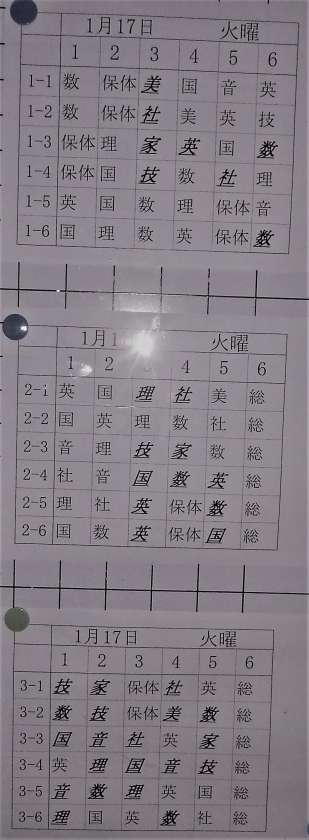 1月17日 火曜
1 2 3 4 5 6
1-1 数 保体 美 国 音 英
1-2 数 保体 社 美 英 技
1-3 保体 理 家 英 国 数
1-4 保体 国 技 数 社 理
1-5 英 国 数 理 保体 音
1-6 国 理 数 英 保体 数
1月1 火曜
1 2 4 5 6
2-1 英 国 理 社 美 総
2-2 国 英 理 数 社 総
2-3 音 理 技 家 数 総
2-4 社 音 国 数 英 総
2-5 理 社 英 保体 数 総
2-6 国 数 英 保体 国 総
1月17日 火曜
1 2 3 4 5 6
3-1 技 家 保体 社 英 総
3-2 数 技 保体 美 数 総
3-3 国 音 社 英 家 総
3-4 英 理 国 音 技 総
3-5 音 数 理 英 国 総
3-6 理 国 英 数 社 総